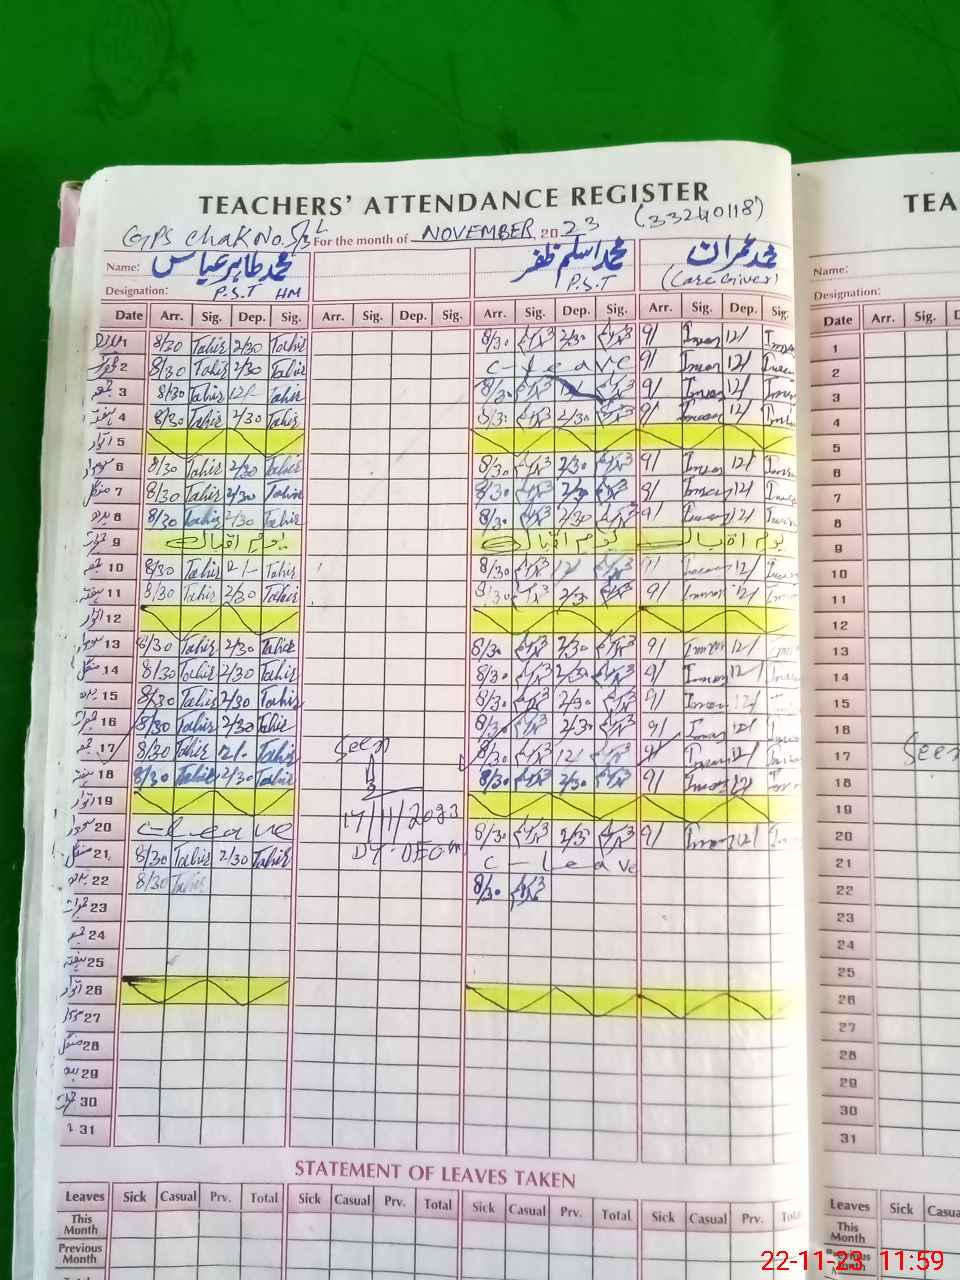 TEACHERS' ATTENDANCE REGISTER
TEA
GPS Chak No. 5/3L For the month of NOVEMBER 2023 (33240118)
Name: محمد طاہر عباس محمد اسلم ظفر محمد عمران
Name:
Designation: P.S.T HM P.S.T (Care Giver)
Designation:
Date Arr. Sig. Dep. Sig. Arr. Sig. Dep. Sig. Arr. Sig. Dep. Sig. Arr. Sig. Dep. Sig.
Date Arr. Sig. D
1 8/30 Tahir 2/30 Tahir 8/30 2/30 9/ Imran 12/ Imran
2 8/30 Tahir 2/30 Tahir C-Leave 9/ Imran 12/ Imran
جمعہ 3 8/30 Tahir 12/- Tahir 8/30 9/ Imran 12/ Imran
ہفتہ 4 8/30 Tahir 2/30 Tahir 8/30 2/30 9/ Imran 12/
اتوار 5
6 8/30 Tahir 2/30 Tahir 8/30 2/30 9/ Imran 12/
منگل 7 8/30 Tahir 2/30 Tahir 8/30 2/30 9/ Imran 12/
بدھ 8 8/30 Tahir 2/30 Tahir 8/30 2/30 9/ Imran 12/
9 یوم اقبال یوم اقبال یوم اقبال
جمعہ 10 8/30 Tahir 12/- Tahir 8/30 12/ 9/ Imran 12/
ہفتہ 11 8/30 Tahir 2/30 Tahir 8/30 2/30 9/ Imran 12/
اتوار 12
13 8/30 Tahir 2/30 Tahir 8/30 2/30 9/ Imran 12/
منگل 14 8/30 Tahir 2/30 Tahir 8/30 2/30 9/ Imran 12/
بدھ 15 8/30 Tahir 2/30 Tahir 8/30 2/30 9/ Imran 12/
16 8/30 Tahir 2/30 Tahir 8/30 2/30 9/ Imran 12/
جمعہ 17 8/30 Tahir 12/- Tahir Seen 8/30 12/ 9/ Imran 12/
ہفتہ 18 8/30 Tahir 2/30 Tahir 8/30 2/30 9/ Imran 12/
اتوار 19
20 C-Leave 17/11/2023 8/30 2/30 9/ Imran 12/
منگل 21 8/30 Tahir 2/30 Tahir DY. DEO C-Leave
بدھ 22 8/30 Tahir 8/30
23
جمعہ 24
ہفتہ 25
اتوار 26
27
منگل 28
بدھ 29
30
31
1
2
3
4
5
6
7
8
9
10
11
12
13
14
15
16
17 Seen
18
19
20
21
22
23
24
25
26
27
28
29
30
31
STATEMENT OF LEAVES TAKEN
Leaves Sick Casual Prv. Total Sick Casual Prv. Total Sick Casual Prv. Total Sick Casual Prv.
This Month
Previous Month
Leaves Sick
This Month
22-11-23 11:59